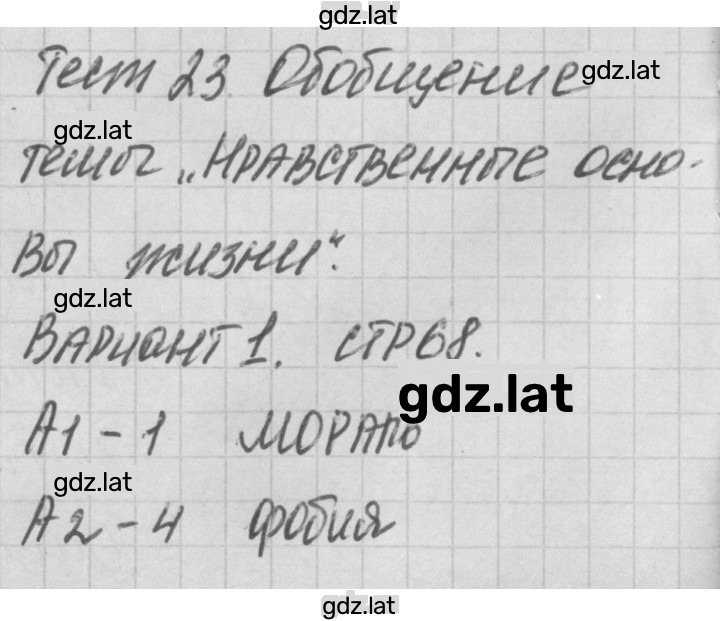 gdz.lat
Тест 23 Обобщение
gdz.lat
gdz.lat
темы „Нравственные осно-
вы жизни“.
gdz.lat
Вариант 1. стр 68.
gdz.lat
А1 - 1 МОРАЛЬ
gdz.lat
А2 - 4 фобия
gdz.lat